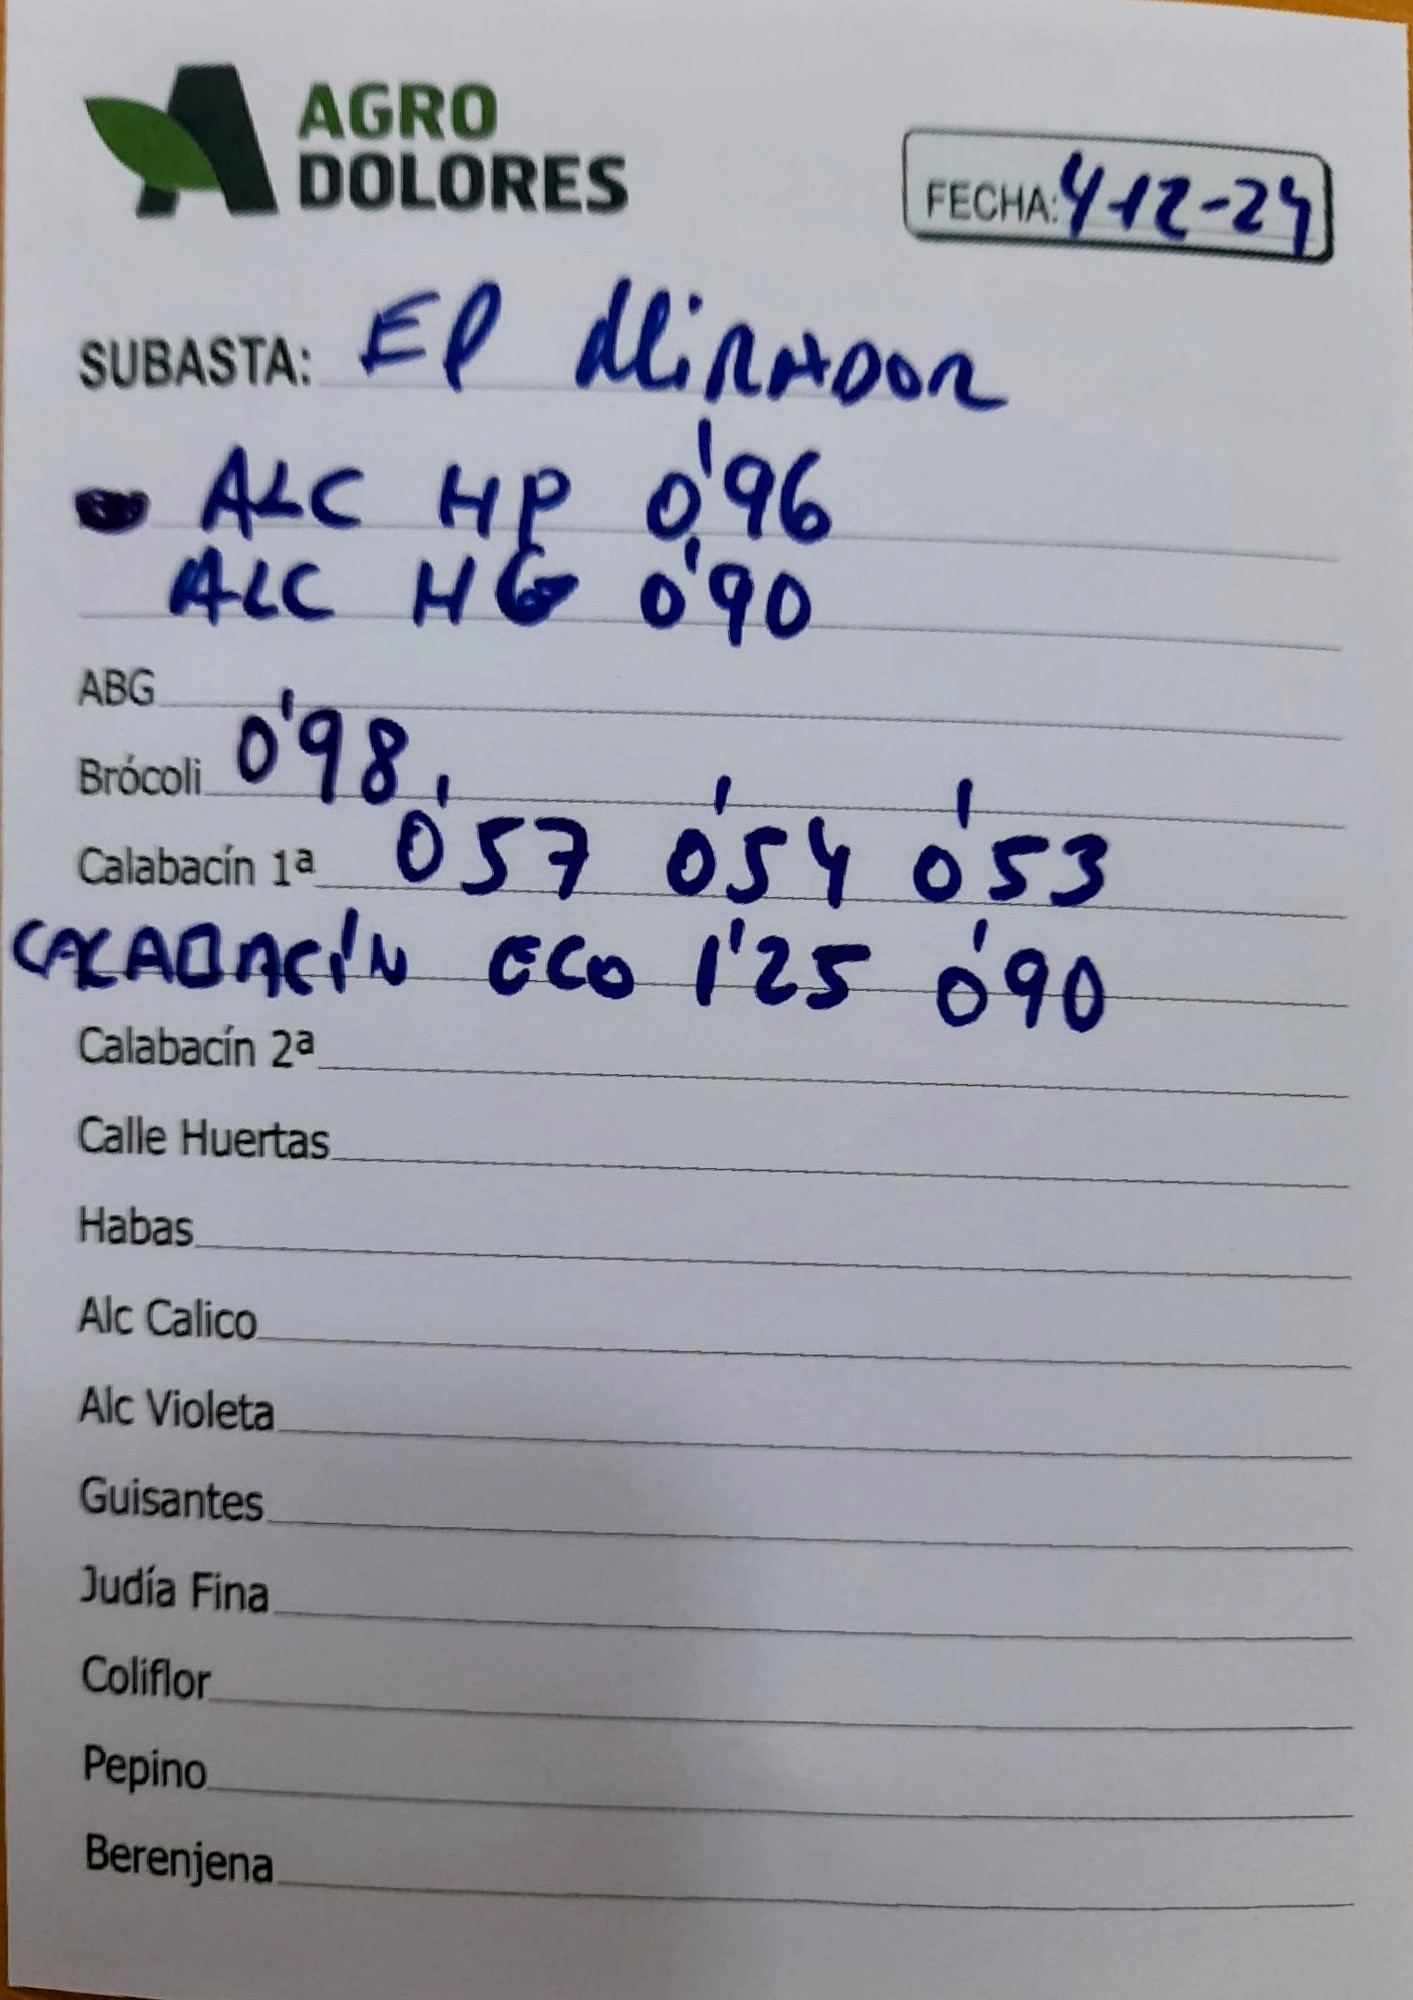 AGRO
DOLORES
FECHA: 4-12-24
SUBASTA: El MiRADOR
ALC HP 0'96
ALC HG 0'90
ABG
Brócoli 0'98
Calabacín 1ª 0'57 0'54 0'53
CALABACÍN ECO 1'25 0'90
Calabacín 2ª
Calle Huertas
Habas
Alc Calico
Alc Violeta
Guisantes
Judía Fina
Coliflor
Pepino
Berenjena